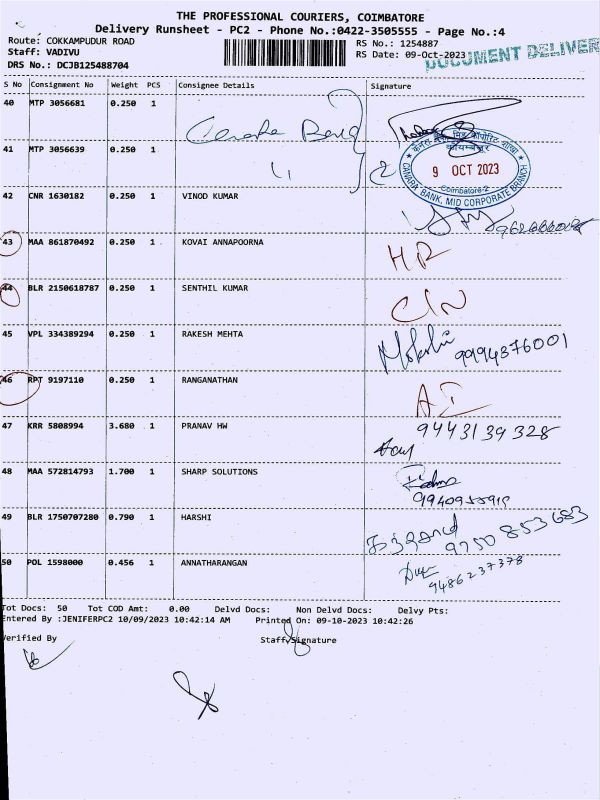 THE PROFESSIONAL COURIERS, COIMBATORE
Delivery Runsheet - PC2 - Phone No.:0422-3505555 - Page No.:4
Route: COKKAMPUDUR ROAD
Staff: VADIVU
DRS No.: DCJB125488704
RS No.: 1254887
RS Date: 09-Oct-2023
DOCUMENT DELIVER
S No Consignment No Weight PCS Consignee Details Signature
40 MTP 3056681 0.250 1
Canara Bank
41 MTP 3056639 0.250 1
"
2
केनरा बैंक मिड कॉर्पोरेट शाखा
कोयम्बत्तूर
9 OCT 2023
Coimbatore-2
CANARA BANK, MID CORPORATE BRANCH
42 CNR 1630182 0.250 1 VINOD KUMAR
43 MAA 861870492 0.250 1 KOVAI ANNAPOORNA
HR
44 BLR 2150618787 0.250 1 SENTHIL KUMAR
CIN
45 VPL 334389294 0.250 1 RAKESH MEHTA
9994376001
46 RPT 9197110 0.250 1 RANGANATHAN
AI
47 KRR 5808994 3.680 1 PRANAV HW
9443139328
48 MAA 572814793 1.700 1 SHARP SOLUTIONS
49 BLR 1750707280 0.790 1 HARSHI
9750853683
50 POL 1598000 0.456 1 ANNATHARANGAN
9486237378
Tot Docs: 50 Tot COD Amt: 0.00 Delvd Docs: Non Delvd Docs: Delvy Pts:
Entered By :JENIFERPC2 10/09/2023 10:42:14 AM Printed On: 09-10-2023 10:42:26
Verified By Staff Signature